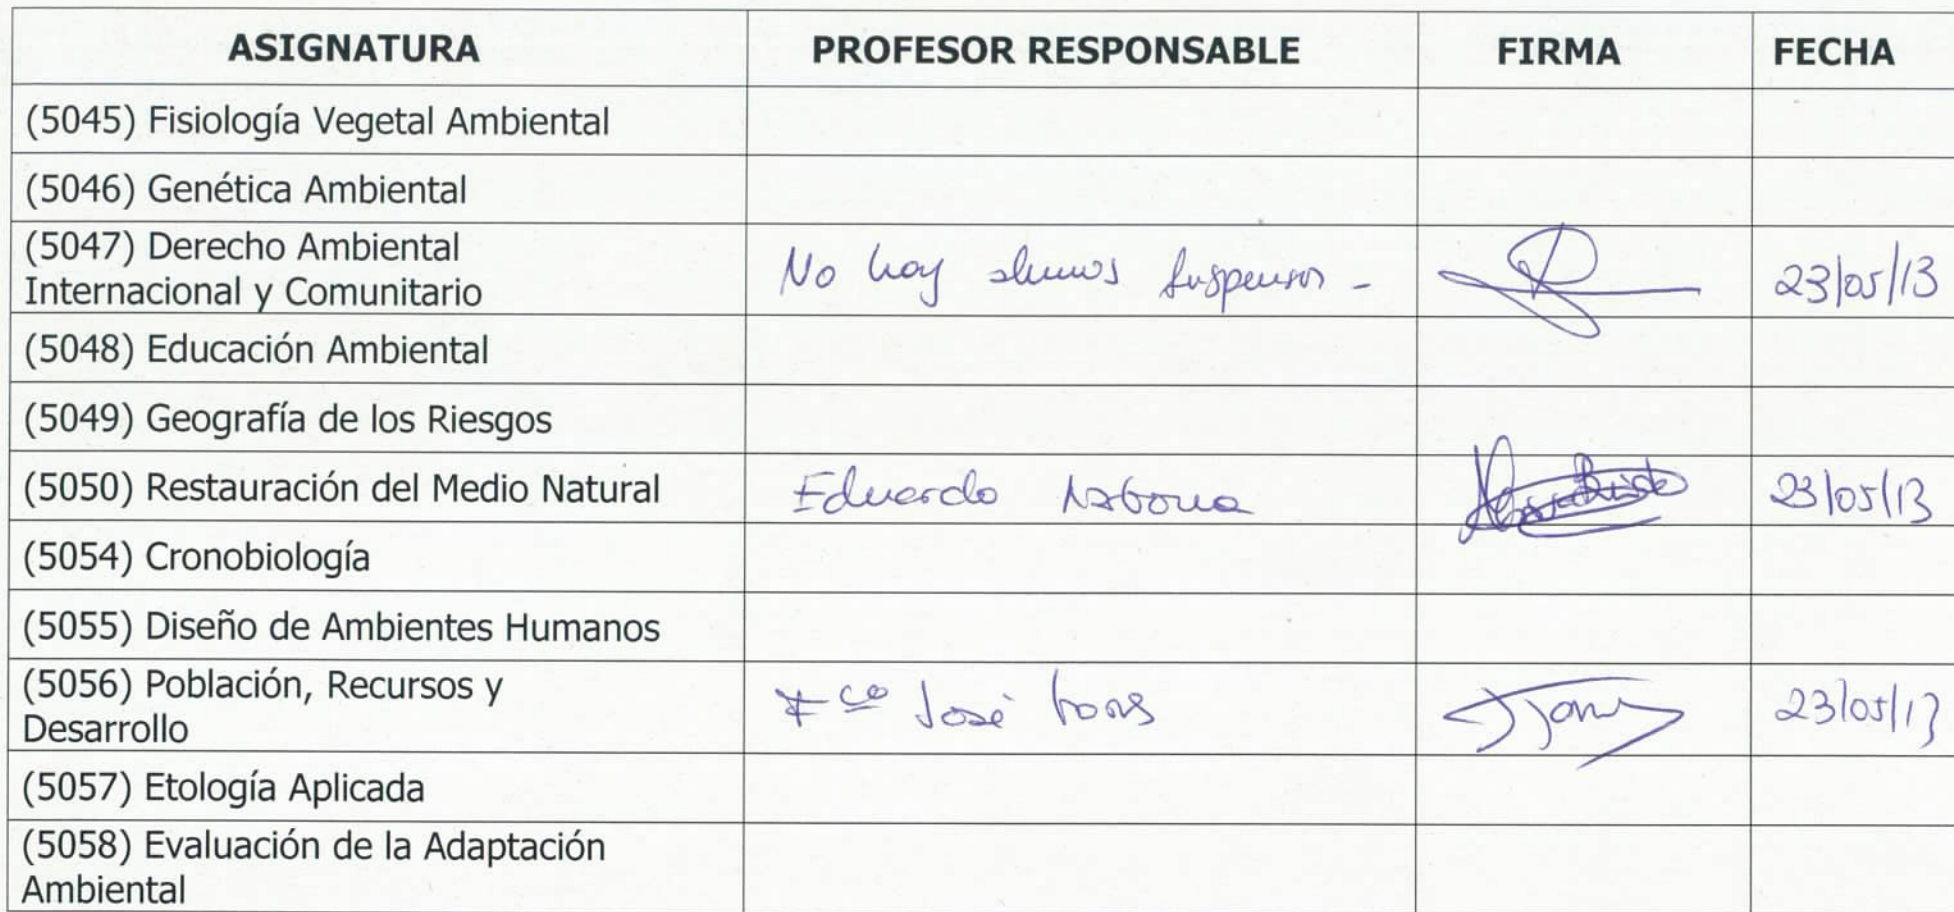 ASIGNATURA PROFESOR RESPONSABLE FIRMA FECHA
(5045) Fisiología Vegetal Ambiental
(5046) Genética Ambiental
(5047) Derecho Ambiental
Internacional y Comunitario
No hay alumnos suspensos - 23/05/13
(5048) Educación Ambiental
(5049) Geografía de los Riesgos
(5050) Restauración del Medio Natural Eduardo 23/05/13
(5054) Cronobiología
(5055) Diseño de Ambientes Humanos
(5056) Población, Recursos y
Desarrollo
Fco José 23/05/13
(5057) Etología Aplicada
(5058) Evaluación de la Adaptación
Ambiental